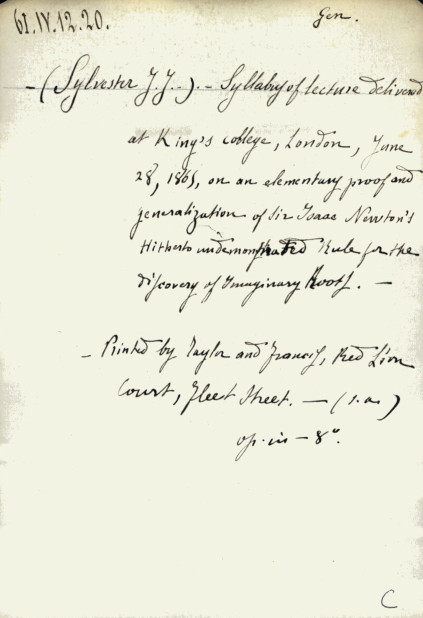 61.IV.12.20.
Gen.
—(Sylvester J.J..).— Syllabus of lecture delivered
at King's College, London, June
28, 1865, on an elementary proof and
generalization of Sir Isaac Newton's
Hitherto undemonstrated Rule for the
discovery of Imaginary Roots. —
— Printed by Taylor and Francis, Red Lion
Court, Fleet Street. — (s.a.)
op. in — 8°.
C